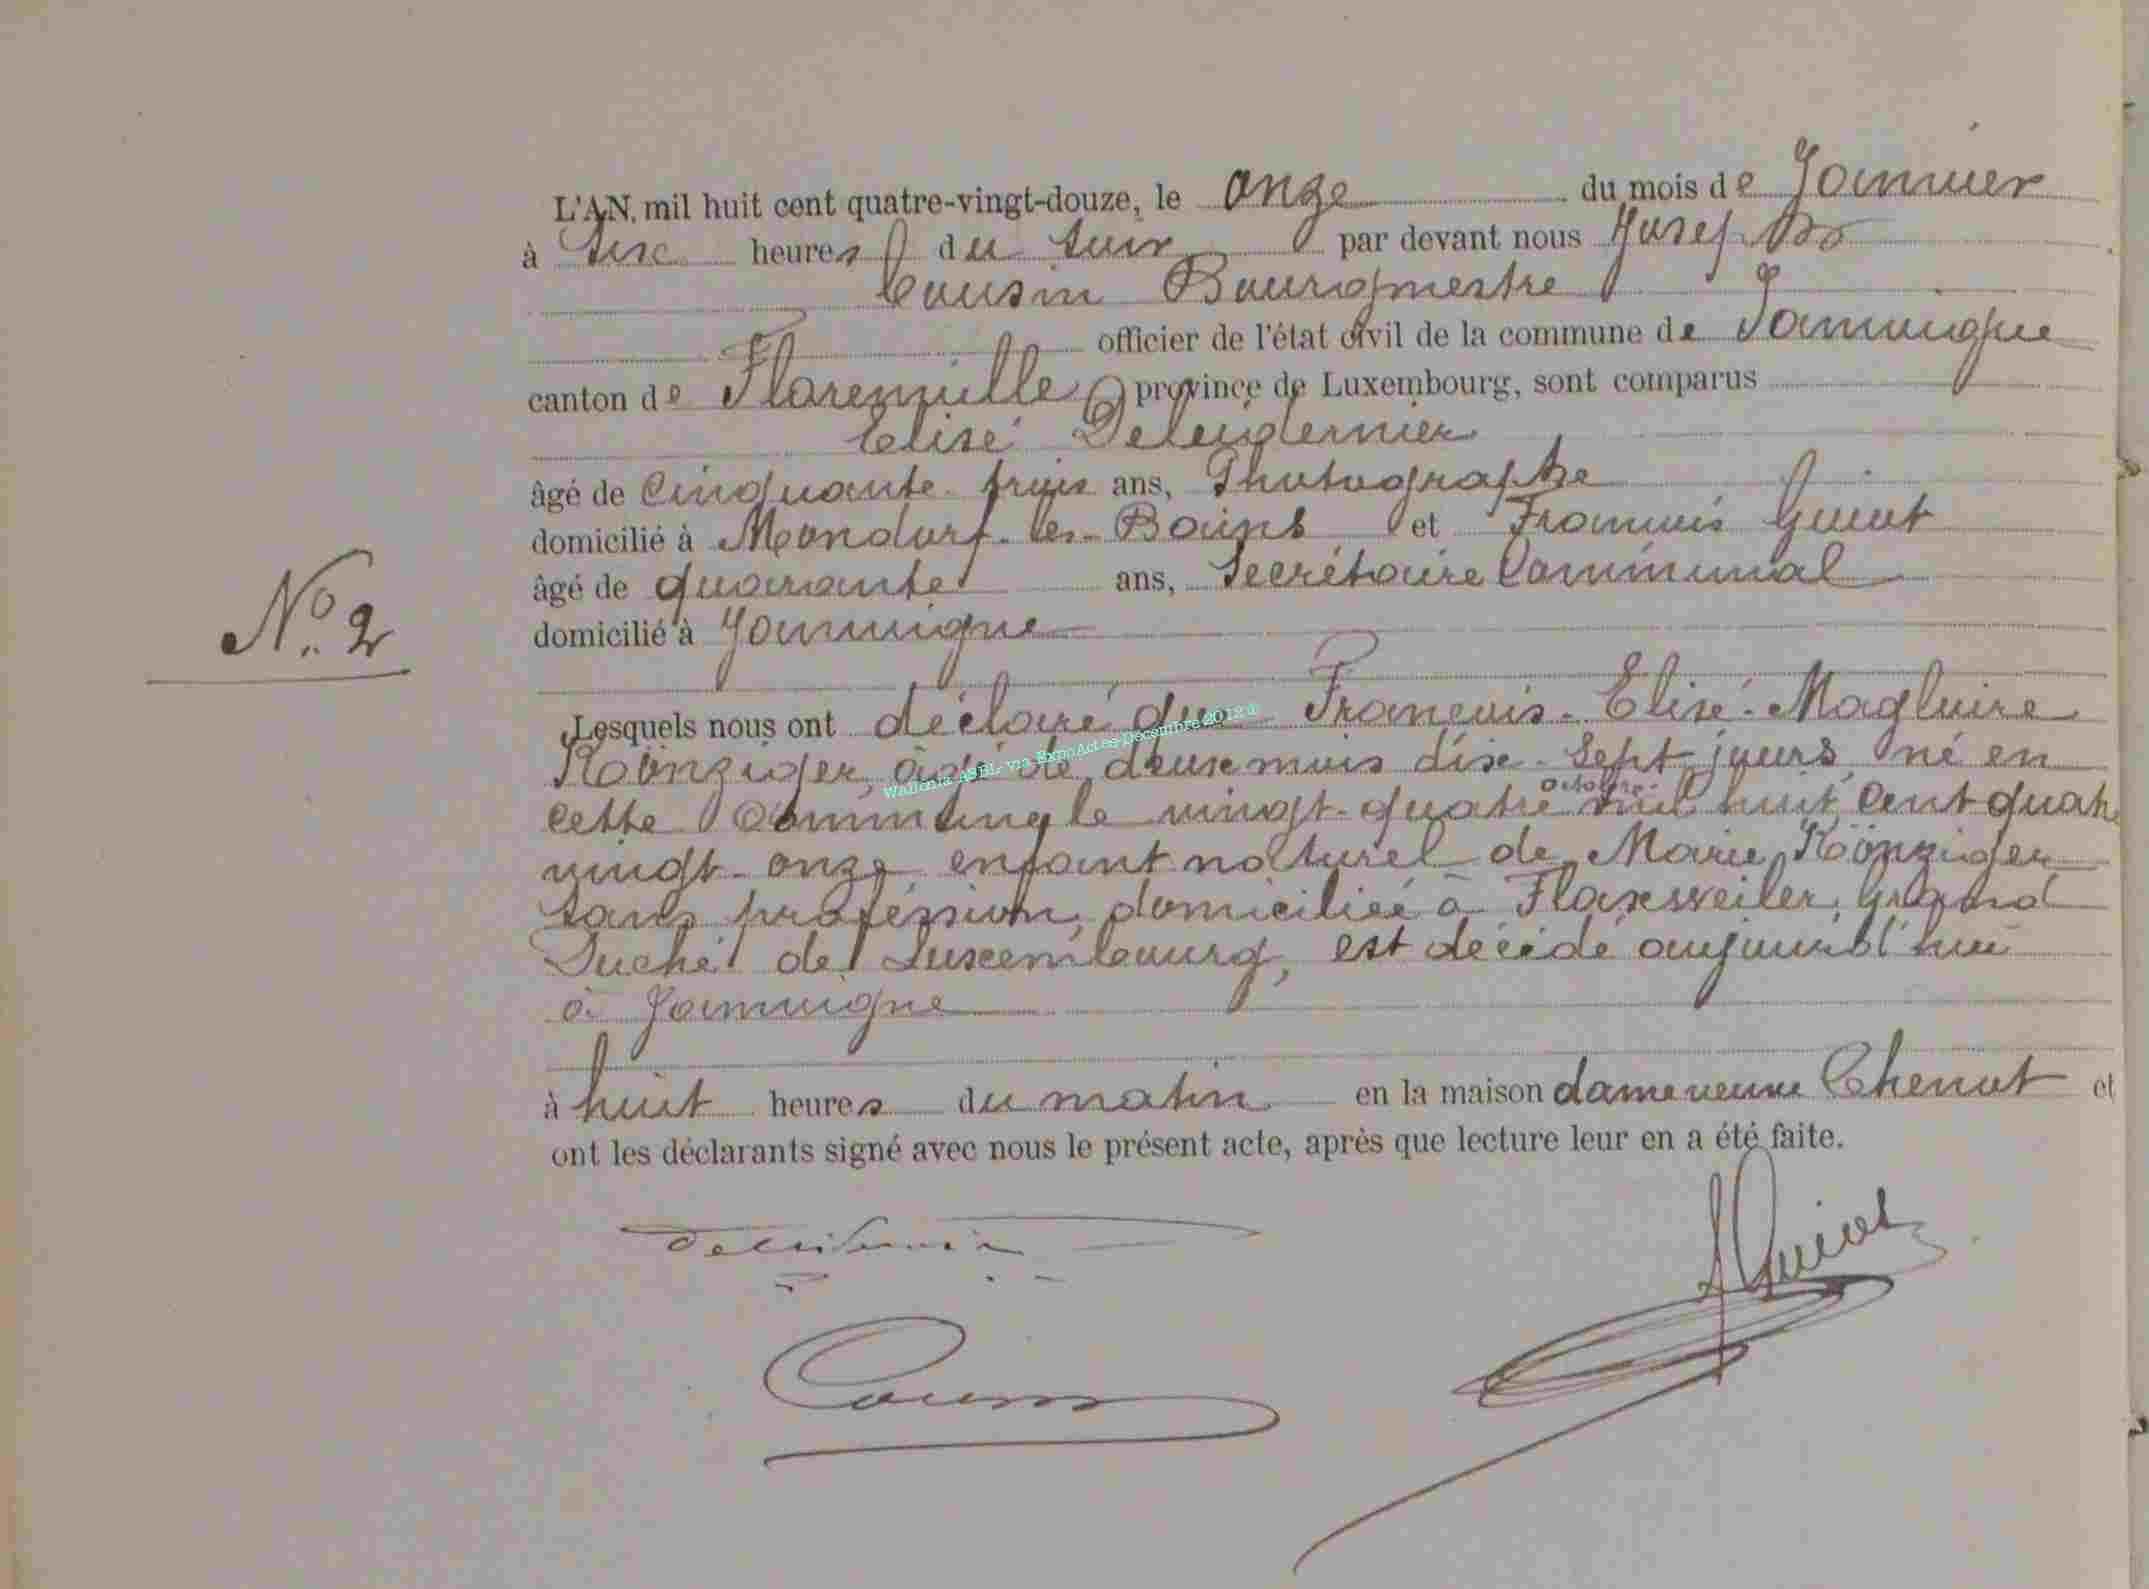 L'AN mil huit cent quatre-vingt-douze, le onze du mois de Janvier
à six heures du soir par devant nous Joseph
Cousin Bourgmestre
officier de l'état civil de la commune de Jamoigne
canton de Florenville province de Luxembourg, sont comparus
Elisé
âgé de Cinquante trois ans, Photographe
domicilié à Mondorf-les-Bains et François Guiot
âgé de quarante ans, Secrétaire Communal
No. 2
domicilié à Jamoigne
Lesquels nous ont déclaré que François-Elisé-Magloire
Könziger, âgé de deux mois dix-sept jours, né en
cette Commune le vingt-quatre octobre mil huit Cent quatre
vingt-onze enfant naturel de Marie Könziger
sans proféssion, domiciliée à Flaxweiler, Grand
Duché de Luxembourg, est décédé aujourd'hui
à Jamoigne
à huit heures du matin en la maison dame veuve Chenot et
ont les déclarants signé avec nous le présent acte, après que lecture leur en a été faite.
Wallonia ASBL via ExpoActes Décembre 2012
Guiot
Cousin